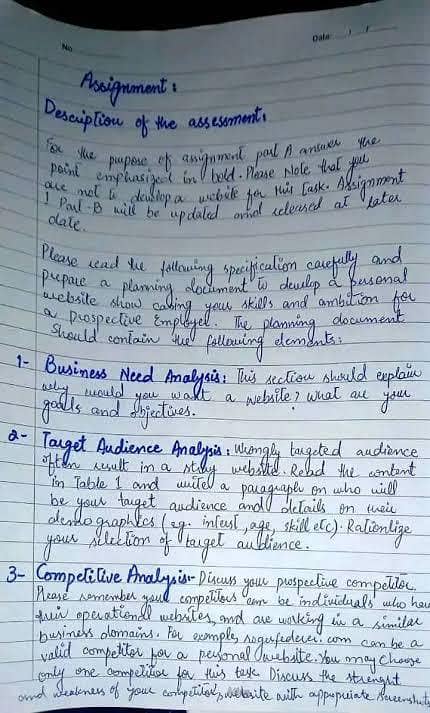 No
Date: / /
Assignment :
Description of the assessment:
For the purpose of assignment part A answer the
point emphasized in bold. Please Note that you
are not to develop a website for this task. Assignment
1 Part-B will be updated and released at later
date.
Please read the following specification carefully and
prepare a planning document to develop a personal
website show casing your skills and ambition for
a prospective Employer. The planning document
Should contain the following elements:
1- Business Need Analysis: This section should explain
why would you want a website? what are your
goals and objectives.
2- Target Audience Analysis: Wrongly targeted audience
often result in a stray website. Read the content
in Table 1 and write a paragraph on who will
be your target audience and details on their
demographics (eg. interest, age, skill etc). Rationlize
your selection of target audience.
3- Competitive Analysis- Discuss your prospective competitor.
Please remember your competitors can be individuals who have
their operational websites, and are working in a similar
business domains. For example, rogerfederer.com can be a
valid competitor for a personal website. You may choose
only one competitor for this task Discuss the strenght
and weakness of your competitor's website with appropriate screenshots